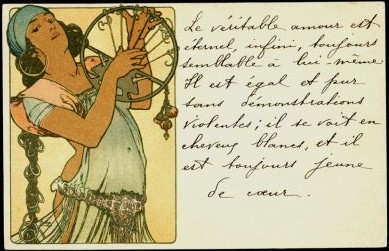 Le véritable amour est
éternel, infini, toujours
semblable à lui-même.
Il est égal et pur
sans démonstrations
violentes ; il se voit en
cheveux blancs, et il
est toujours jeune
de cœur.